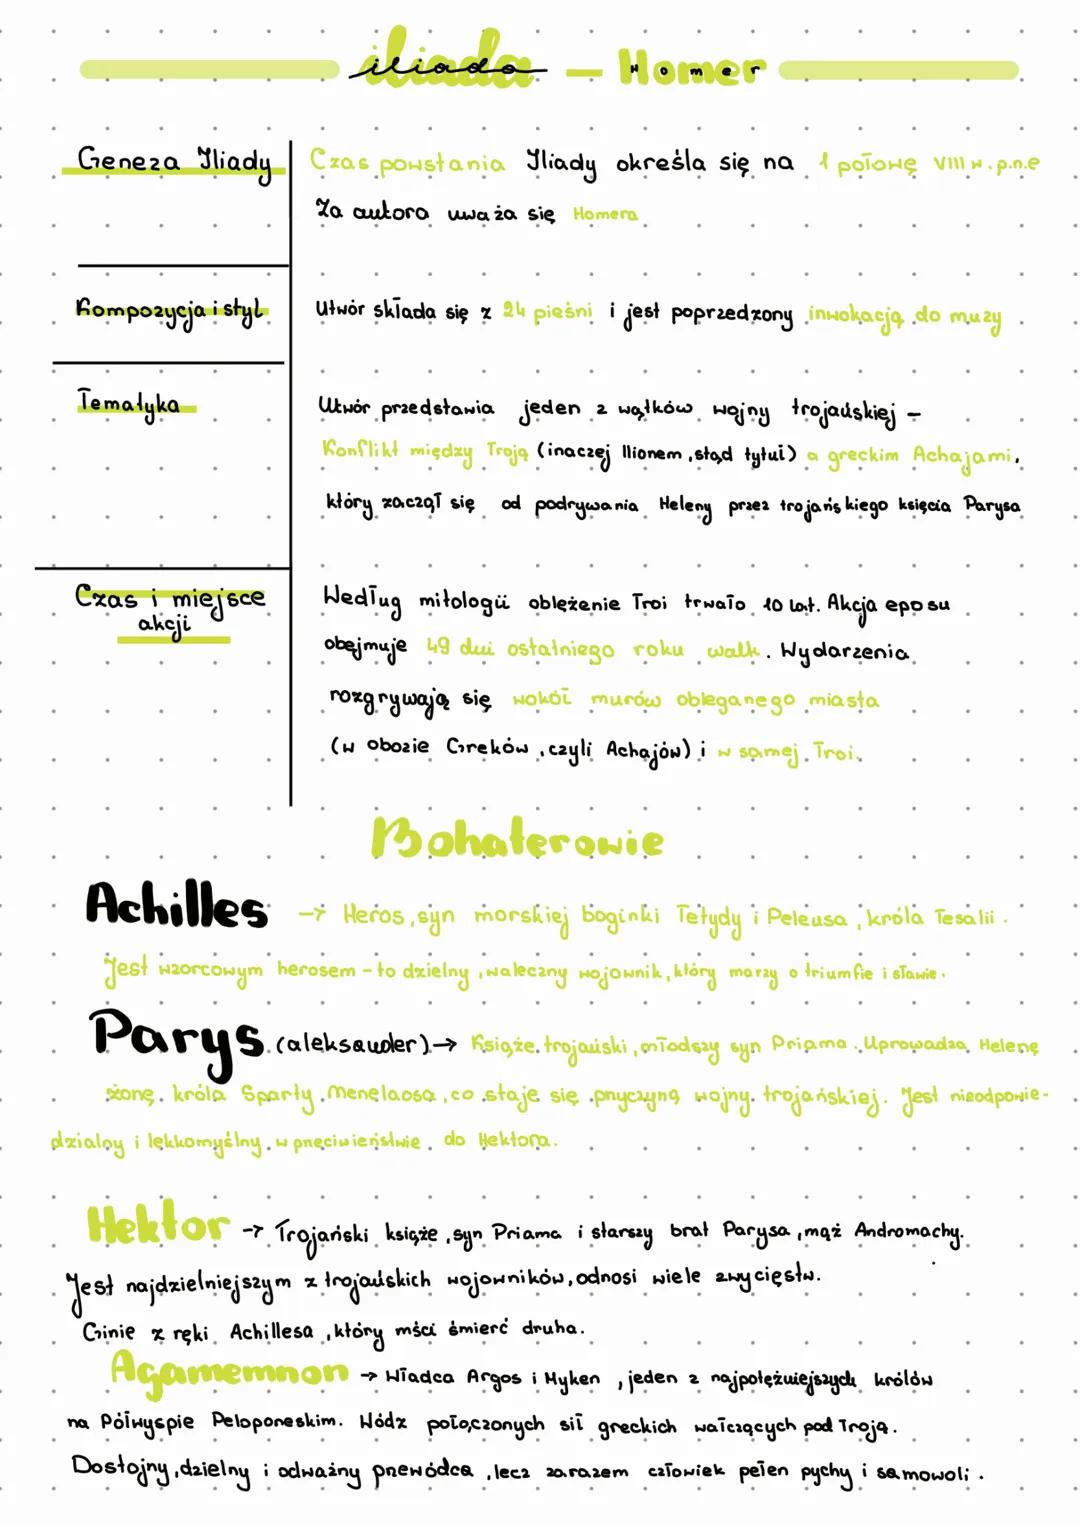 iliada – Homer
Geneza Iliady
Czas powstania Iliady określa się na 1 połowę VIII w.p.n.e
Za autora uważa się Homera
Kompozycja i styl
Utwór składa się z 24 pieśni i jest poprzedzony inwokacją do muzy
Tematyka
Utwór przedstawia jeden z wątków wojny trojańskiej –
Konflikt między Troją (inaczej Ilionem, stąd tytuł) a greckim Achajami,
który zaczął się od podrywania Heleny przez trojańskiego księcia Parysa
Czas i miejsce
akcji
Według mitologii oblężenie Troi trwało 10 lat. Akcja eposu
obejmuje 49 dni ostatniego roku walk. Wydarzenia
rozgrywają się wokół murów obleganego miasta
(w obozie Greków, czyli Achajów) i w samej Troi.
Bohaterowie
Achilles → Heros, syn morskiej boginki Tetydy i Peleusa, króla Tesalii.
Jest wzorcowym herosem – to dzielny, waleczny wojownik, który marzy o triumfie i sławie.
Parys (aleksander) → Książe trojański, młodszy syn Priama. Uprowadza Helenę
żonę króla Sparty Menelaosa, co staje się przyczyną wojny trojańskiej. Jest nieodpowie-
dzialny i lękkomyślny w przeciwieństwie do Hektora.
Hektor → Trojański książe, syn Priama i starszy brat Parysa, mąż Andromachy.
Jest najdzielniejszym z trojańskich wojowników, odnosi wiele zwycięstw.
Ginie z ręki Achillesa, który mści śmierć druha.
Agamemnon → Władca Argos i Myken, jeden z najpotężniejszych królów
na Półwyspie Peloponeskim. Wódz połączonych sił greckich walczących pod Troją.
Dostojny, dzielny i odważny przewódca, lecz zarazem człowiek pełen pychy i samowoli.